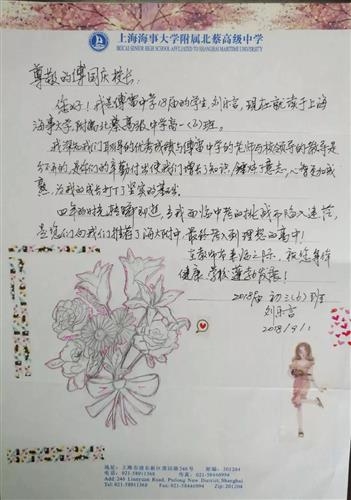 上海海事大学附属北蔡高级中学
BEICAI SENIOR HIGH SCHOOL AFFILIATED TO SHANGHAI MARITIME UNIVERSITY
尊敬的傅国庆校长:
您好!我是傅雷中学18届的学生,刘乐言,现在就读于上海
海事大学附属北蔡高级中学高一(2)班。
我深知我们取得的优秀成绩与傅雷中学的老师与校领导的教导是
分不开的,是你们的辛勤付出使我们增长了知识,锤炼了意志,心智更加成
熟,为我的成长打下了坚实的基础。
四年时光转瞬即逝,当我面临中考的挑战而陷入迷茫,
是您们向我们推荐了海大北中,最终考入到理想的高中!
在教师节来临之际,祝您身体
健康,学校蓬勃发展!
2018届 初三(6)班
刘乐言
2018/9/1
地址:上海市浦东新区莲园路248号 邮编:201204
电话:021-58911368 传真:021-58446994
Add: 248 Lianyuan Road, Pudong New District, Shanghai
Tel: 021-58911368 Fax: 021-58446994 Zip: 201204